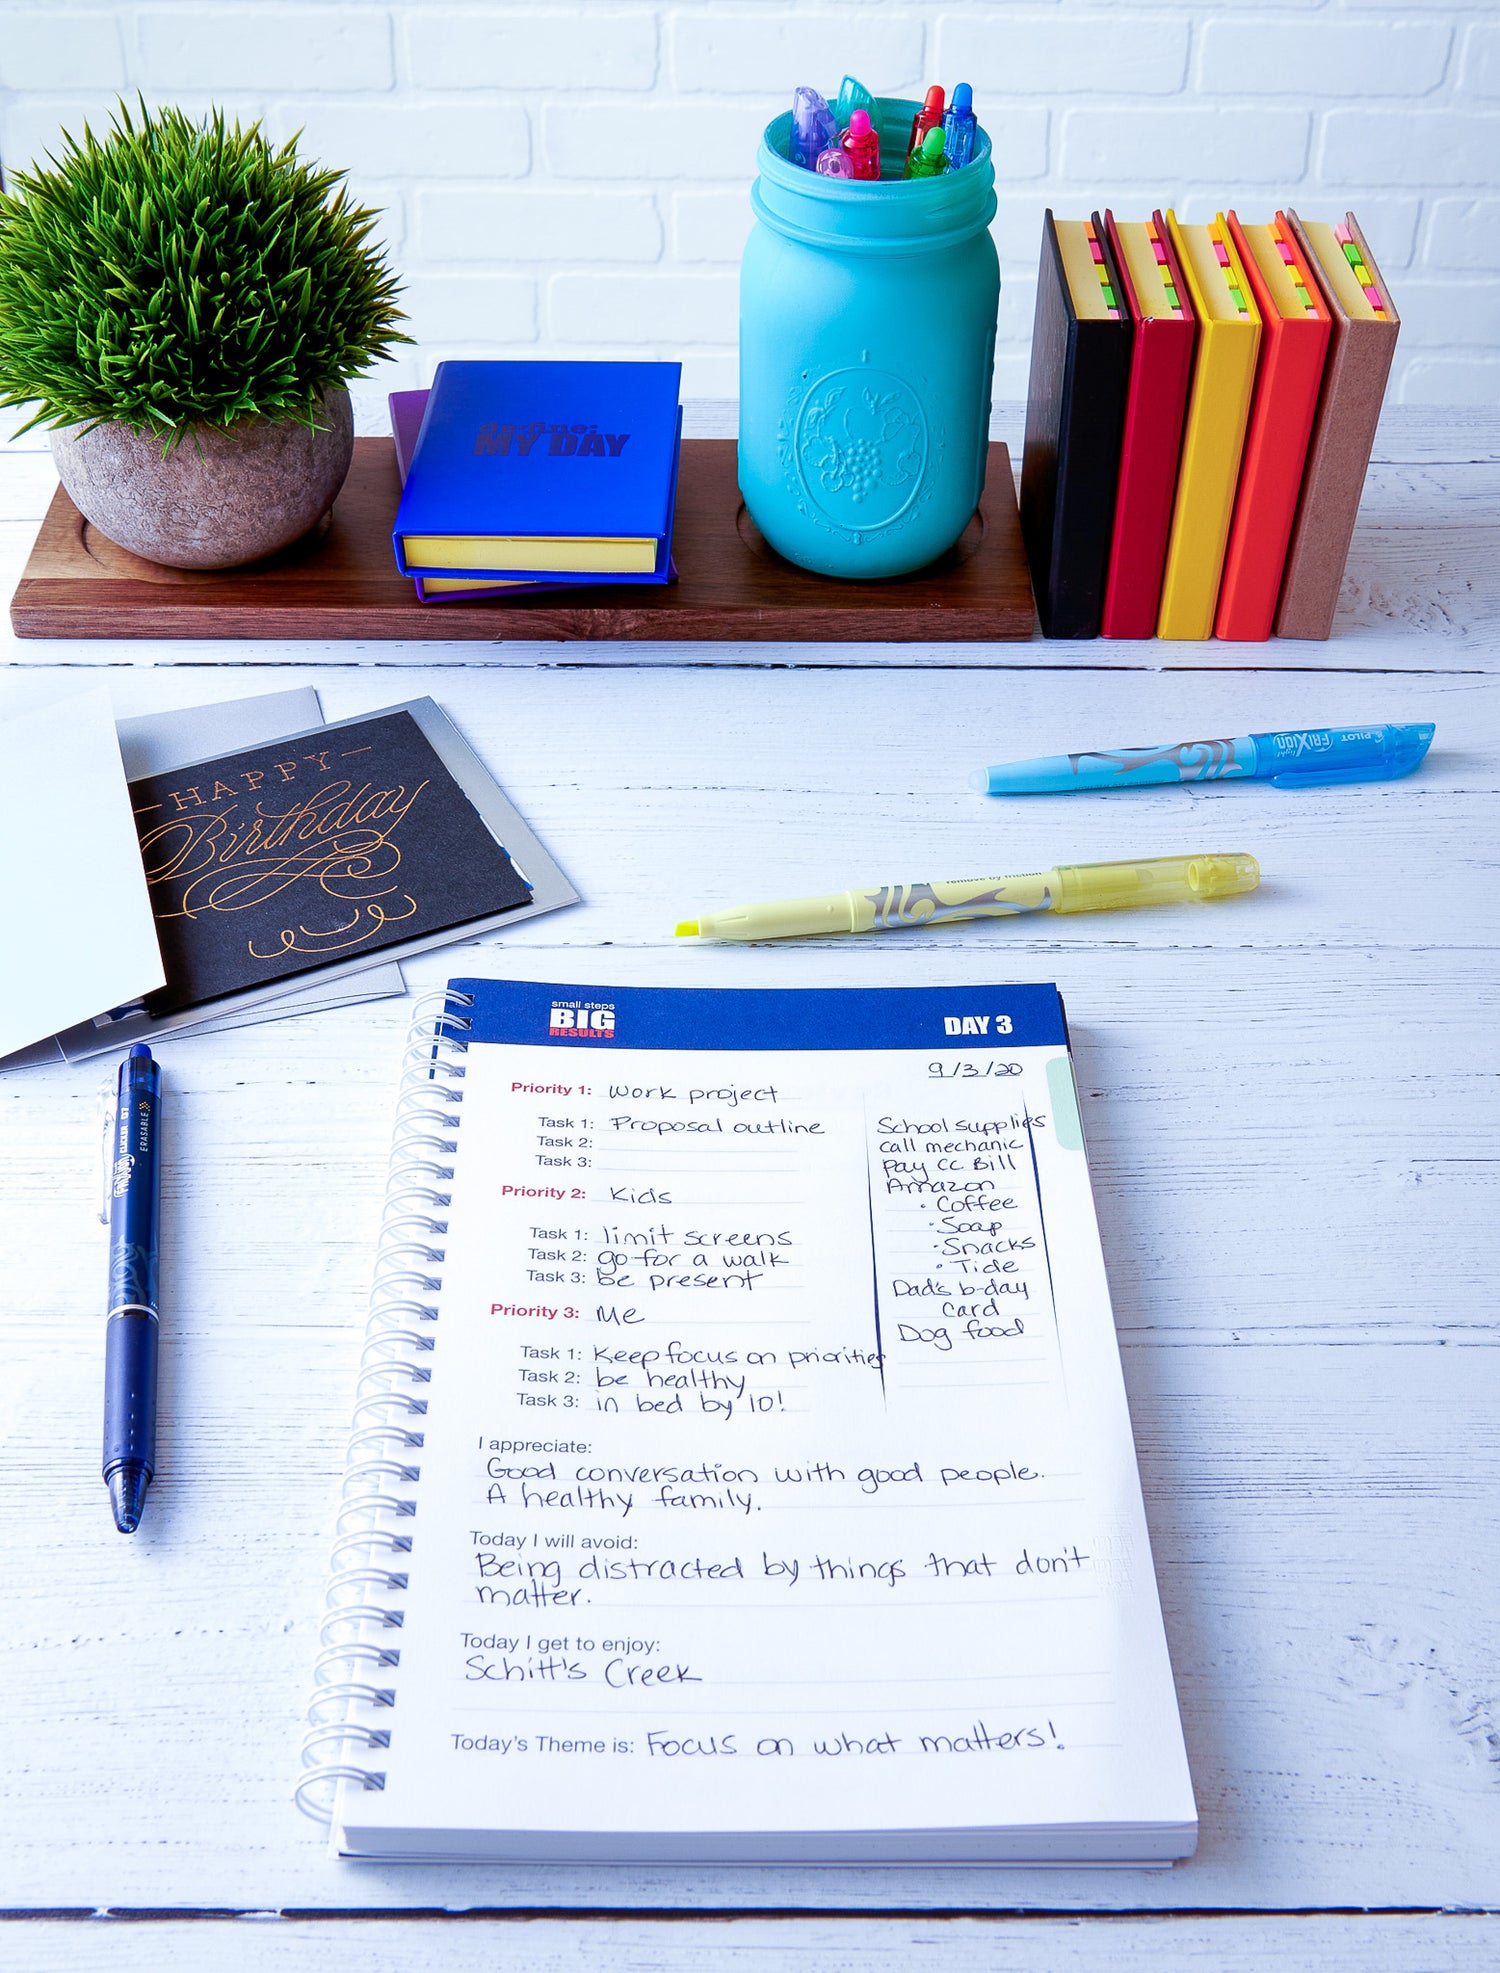 de·fine:
MY DAY
PILOT
FRIXION
light
remove by friction
— HAPPY —
Birthday
FRIXION CLICKER 07
ERASABLE
small steps
BIG
RESULTS
DAY 3
9/3/20
Priority 1: Work project
Task 1: Proposal outline
Task 2:
Task 3:
Priority 2: Kids
Task 1: limit screens
Task 2: go for a walk
Task 3: be present
Priority 3: Me
Task 1: Keep focus on priorities
Task 2: be healthy
Task 3: in bed by 10!
School supplies
call mechanic
pay CC Bill
Amazon
· Coffee
· Soap
· Snacks
· Tide
Dad's b-day
Card
Dog food
I appreciate:
Good conversation with good people.
A healthy family.
Today I will avoid:
Being distracted by things that don't
matter.
Today I get to enjoy:
Schitt's Creek
Today's Theme is: Focus on what matters!